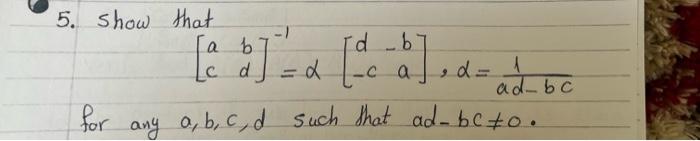 5. Show that
[a b; c d]⁻¹ = α [d -b; -c a], α = 1/(ad-bc)
for any a, b, c, d such that ad-bc≠0.